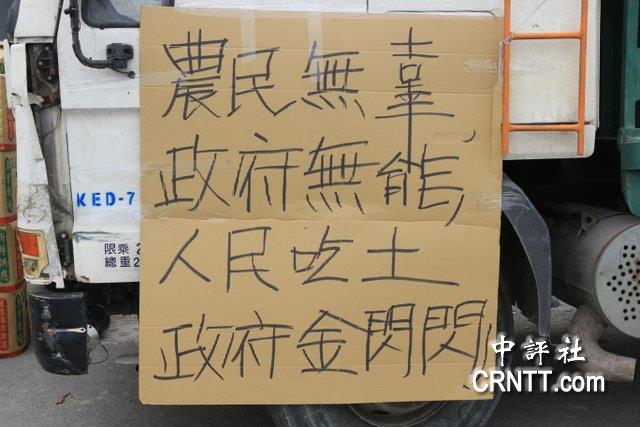 農民無辜，
政府無能，
人民吃土
政府金閃閃
KED-7
限乘 2
總重 2
中評社
CRNTT.com